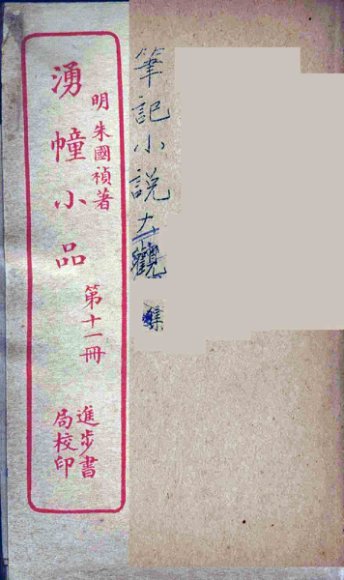 筆記小説大觀
明朱國禎著
湧幢小品
第十一冊
進步書
局校印